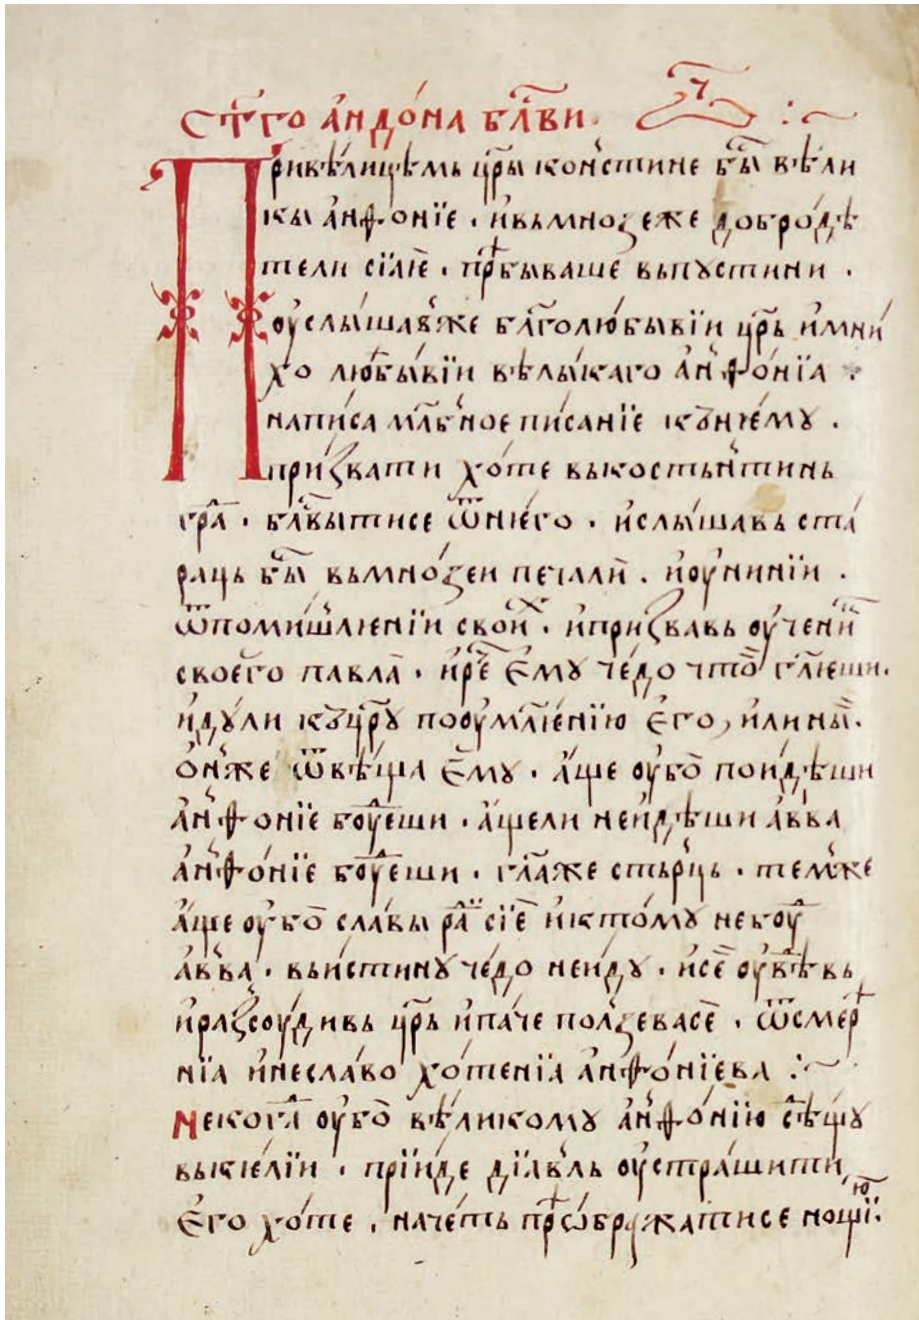 Ст҃го а҆ндо́на бл҃ви.
При вѣлицѣмь цр҃ы конⷭ҇стине бы̑ вѣли
кы а҆нѳоніе · и҆ вьмноѕеже доброде́
тели сїаѥ · прⷣѣбываше вьпꙋстини ·
ѹ҆слы́шавже бл҃голю́бывїи цр҃ь и҆ мни́
хо любы́вїи вѣлы́каго а҆нѳо́нїа :
написа мл҃бное писанїе кънѥмꙋ ·
при́звати хо́те выкостьнтинь
гра̑ · бл҃вытисе ѿнѥ́го · и҆слы́шавь ста́
раць бы̑ вьмно́ѕеи печали̑ · и҆ѹ҆нинїи ·
ѿпоми́шлѥнїи свои̑х · и҆призвавь ѹ҆чени̑к
своего̀ павла · и҆рⷱ҇е є҆мꙋ че́до что̀ гл҃ѥши ·
и҆дꙋ́ли къцр҃ꙋ поѹ҆мл҃ѥнїю є҆го, и҆лины̀ ·
ѻ҆нже ѿвѣща є҆мꙋ · а҆ще ѹ҆бо̀ поидѣши
а҆нѳонїе боꙋ҆́еши · а҆щели неидѣши а҆вва
а҆нѳо́нїе боꙋ҆́еши · гл҃аже стьрць · темже
а҆ще ѹ҆бо̀ славы ра̑и сїѐ и҆ктомꙋ небоꙋ҆́
а҆вва̀ · вьистинꙋ че́до неидꙋ · и҆сѐ ѹ҆вѣвь
и҆разсоу́дивь цр҃ь и҆па́че по́лѕевасѐ · ѿсмѣр
нїа и҆неславо хо́тенїа а҆нѳо́нїева :~
Некогⷣа ѹ҆бо̀ вѣ́ликомꙋ а҆нѳо́нїю сѣщꙋ
выкѥ́лїи · прїиде дїа́вль ѹ҆стра́шити
є҆го хо́те · наче́ть прѣѡ҆бражатисе нощїю ·